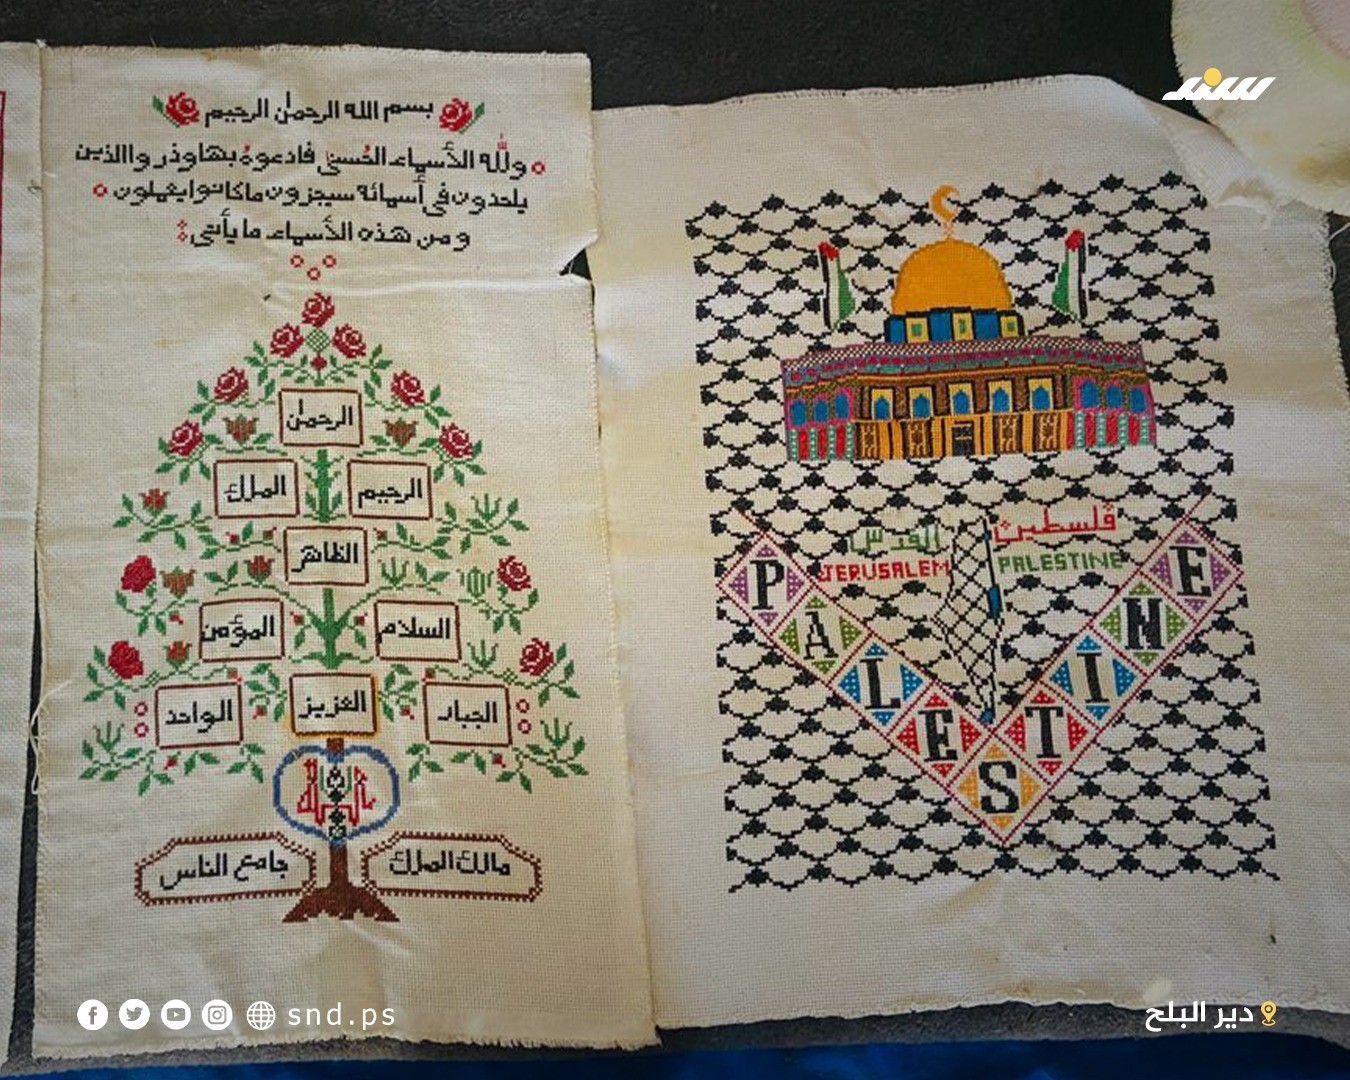 سند
بسم الله الرحمن الرحيم
ولله الأسماء الحُسنى فادعوهُ بها وذرواالذين
يلحدون في أسمائه سيجزون ماكانوايعملون
ومن هذه الأسماء ما يأتي:
الرحمن
الرحيم
الملك
الظاهر
السلام
المؤمن
الجبار
العزيز
الواحد
مالك الملك
جامع الناس
القدس
فلسطين
JERUSALEM
PALESTINE
PALESTINE
snd.ps
دير البلح